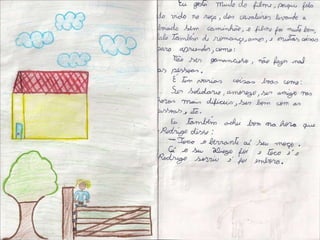 Eu gostei muito do filme, porque fala
da vida na roça, dos cavaleiros levando a
boiada sem caminhão, e filme fa muito bom,
fala também di romanço, amor, e muitas coisas
para aprender, como:
Não ser ganancioso, não fazer mal
as pessoas.
E tem varias coisas boas como:
Ser solidario, amoroso, ser amigo nas
horas mais dificeis, ser bom com as
, etc.
Eu também achei bom na hora que
Rodrigo disse:
— Toca o berrante ai seu moço.
Ai o seu Diogo foi e toco i o
Rodrigo sorriu e foi embora.